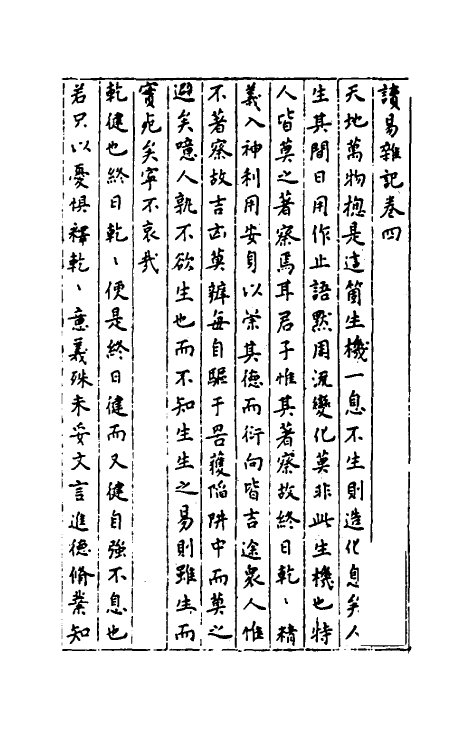 讀易雜記卷四
天地萬物揔是這箇生機一息不生則造化息矣人
生其間日用作止語默周流變化莫非此生機也特
人皆莫之著察焉耳君子惟其著察故終日乾、精
義入神利用安身以崇其德而行向皆吉途衆人惟
不著察故吉凶莫辨每自驅于罟擭陷阱中而莫之
避矣噫人孰不欲生也而不知生生之易則雖生而
實死矣寧不哀哉
乾健也終日乾、便是終日健而又健自強不息也
若只以憂惧釋乾、意義殊未妥文言進德脩業知